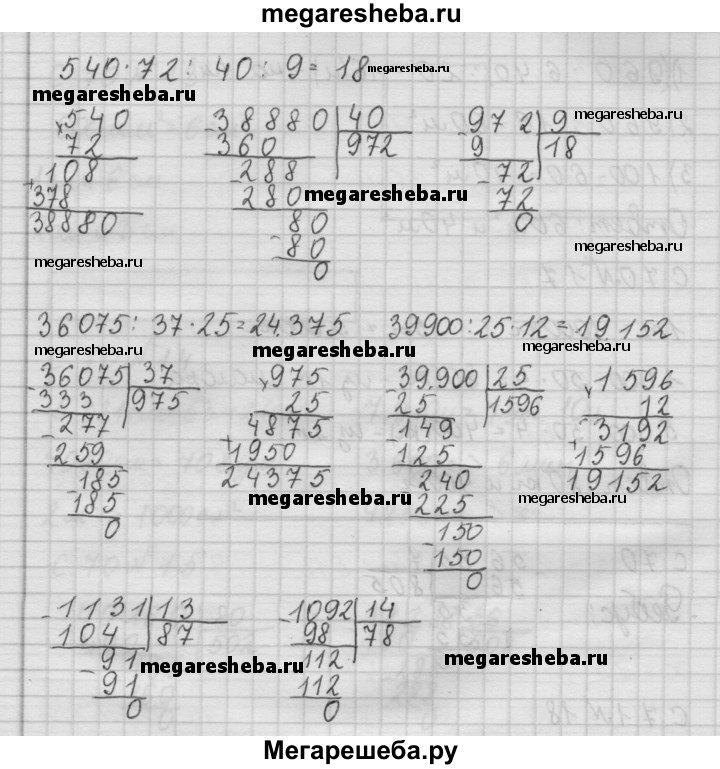 megaresheba.ru
540·72: 40: 9=18 megaresheba.ru
megaresheba.ru
×540
72
108
+378
38880
-38880|40
360 |972
-288
280
80
-80
0
-972|9
9 |18
-72
72
0
megaresheba.ru
megaresheba.ru
megaresheba.ru
megaresheba.ru
36075: 37·25=24.375
39900:25·12=19.152
megaresheba.ru
megaresheba.ru
megaresheba.ru
-36075|37
333 |975
-277
259
-185
185
0
×975
25
4875
+1950
24375
megaresheba.ru
-39.900|25
25 |1596
-149
125
-240
225
-150
-150
0
×1596
12
+3192
1596
19152
megaresheba.ru
-1131|13
104 |87
-91
91
0
megaresheba.ru
-1092|14
98 |78
-112
112
0
megaresheba.ru
Мегарешеба.ру